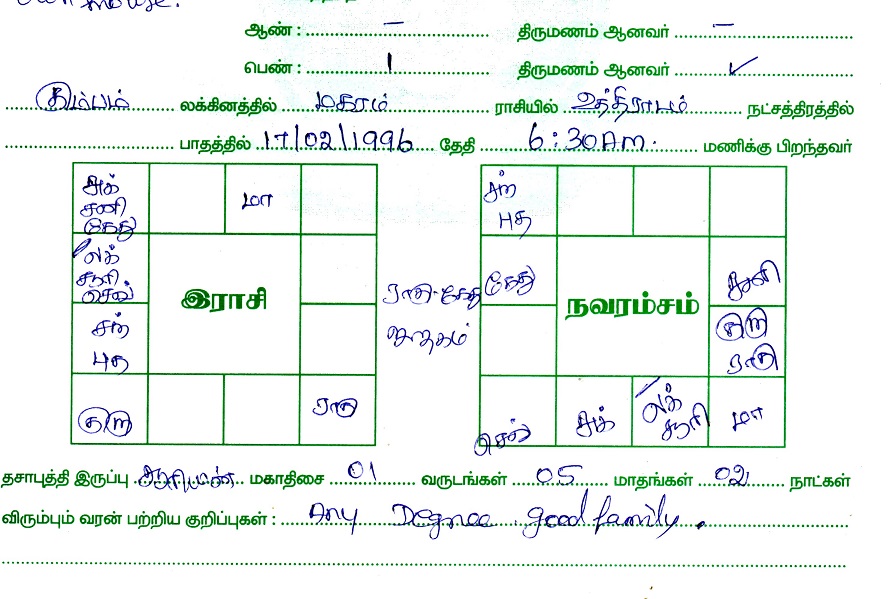 Own house.
ஆண் : – திருமணம் ஆனவர் –
பெண் : 1 திருமணம் ஆனவர் ✓
கும்பம் லக்கினத்தில் மகரம் ராசியில் உத்திராடம் நட்சத்திரத்தில்
பாதத்தில் 17/02/1996 தேதி 6:30 AM. மணிக்கு பிறந்தவர்
சுக் சனி கேது
மா
லக் சூரி செவ்
சந் புத
குரு
ராகு
இராசி
ராகு-கேது ஜாதகம்
சந் புத
கேது
சனி
குரு ராகு
செவ்
சுக்
லக் சூரி
மா
நவரம்சம்
தசாபுத்தி இருப்பு சூரியன் மகாதிசை 01 வருடங்கள் 05 மாதங்கள் 02 நாட்கள்
விரும்பும் வரன் பற்றிய குறிப்புகள் : Any Degree good family.